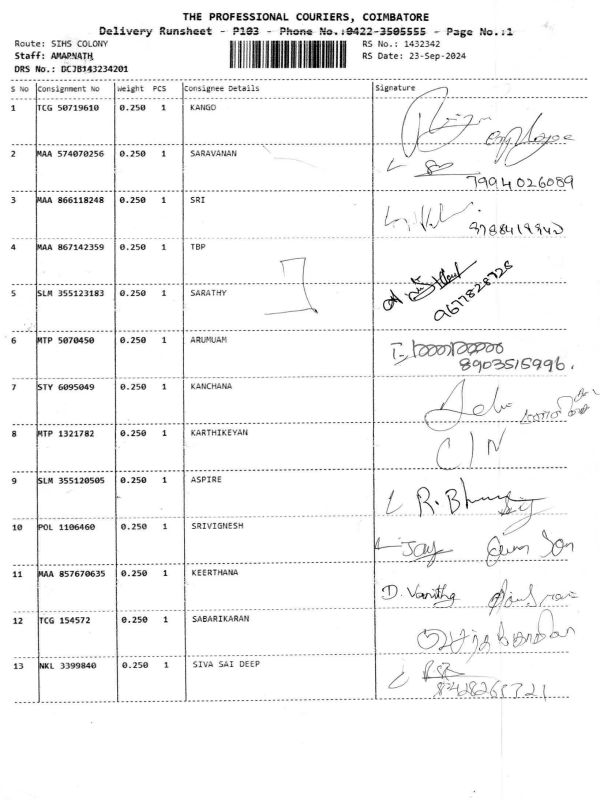 THE PROFESSIONAL COURIERS, COIMBATORE
Delivery Runsheet - P103 - Phone No.:0422-3505555 - Page No.:1
Route: SIHS COLONY RS No.: 1432342
Staff: AMARNATH RS Date: 23-Sep-2024
DRS No.: DCJB143234201
S No Consignment No Weight PCS Consignee Details Signature
1 TCG 50719610 0.250 1 KANGO
2 MAA 574070256 0.250 1 SARAVANAN
7994026089
3 MAA 866118248 0.250 1 SRI
9788419940
4 MAA 867142359 0.250 1 TBP
5 SLM 355123183 0.250 1 SARATHY
9677828728
6 MTP 5070450 0.250 1 ARUMUAM
8903515996.
7 STY 6095049 0.250 1 KANCHANA
8 MTP 1321782 0.250 1 KARTHIKEYAN C/N
9 SLM 355120505 0.250 1 ASPIRE
R. Bhuv
10 POL 1106460 0.250 1 SRIVIGNESH
Jay
11 MAA 857670635 0.250 1 KEERTHANA
D. Vanitha
12 TCG 154572 0.250 1 SABARIKARAN
13 NKL 3399840 0.250 1 SIVA SAI DEEP
8428265721